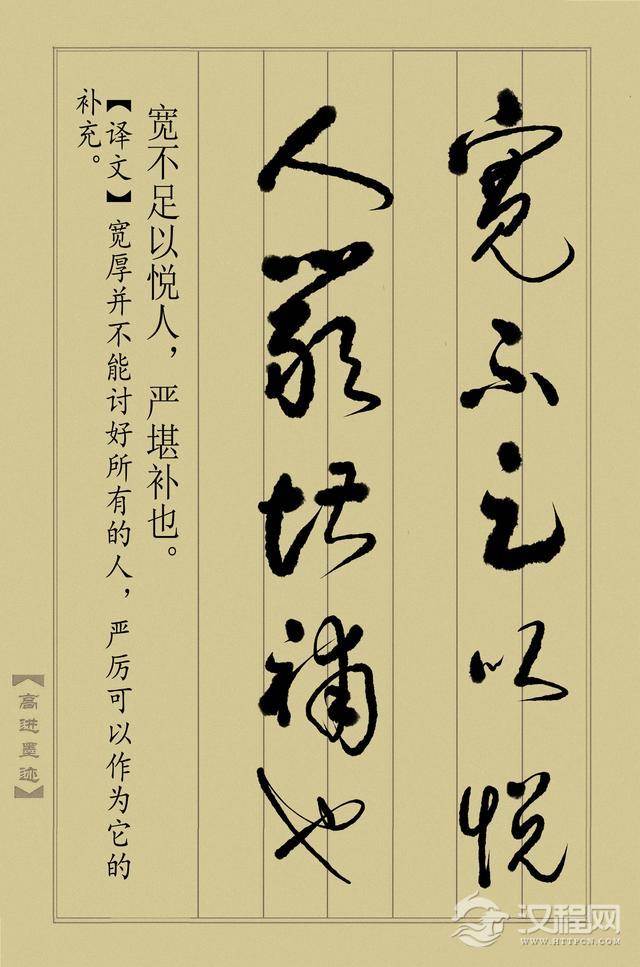 寬不足以悦
人嚴堪補也
宽不足以悦人，严堪补也。
【译文】宽厚并不能讨好所有的人，严厉可以作为它的
补充。
【高进墨迹】
汉程网
WWW.HTTPCN.COM